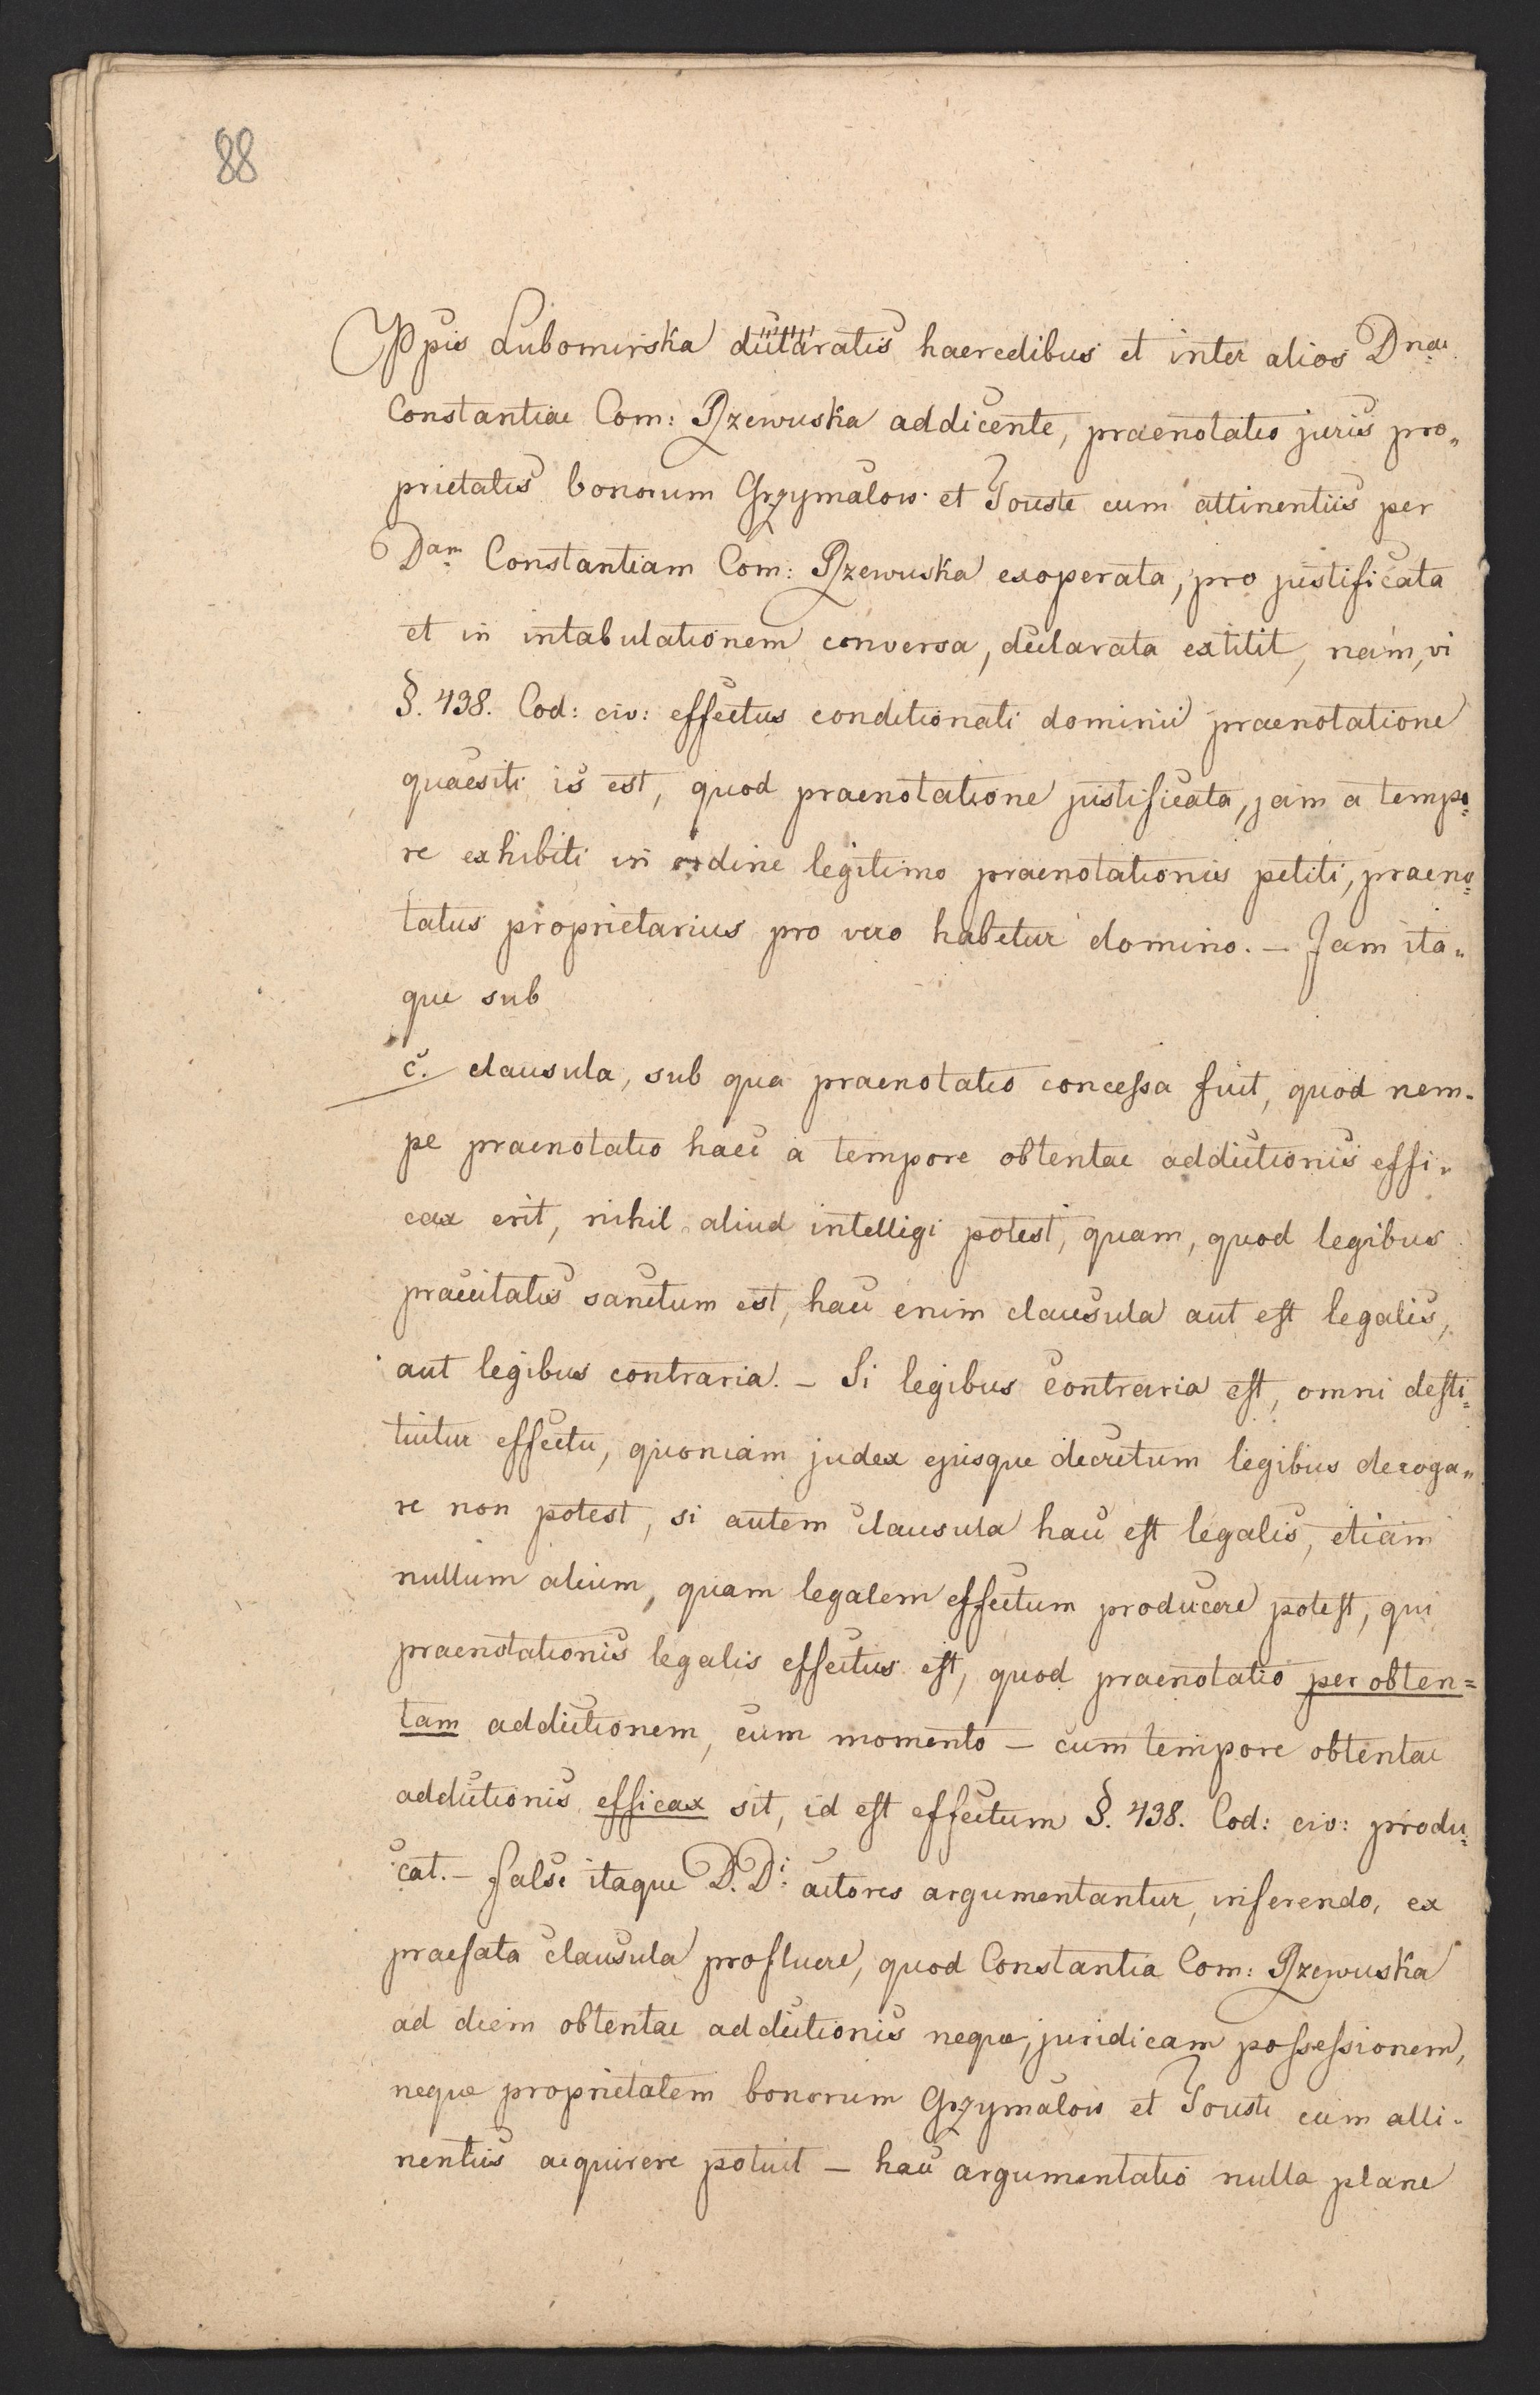 88
Ppis Lubomirska declaratis haeredibus et inter alios Dnae
Constantiae Com: Rzewuska addicente, praenotatio juris pro„
prietatis bonorum Grzymalow et Touste cum attinentiis per
Dam Constantiam Com: Rzewuska exoperata, pro justificata
et in intabulationem conversa, declarata extitit, nam, vi
§. 438. Cod: civ: effectus conditionati dominii praenotatione
quaesiti is est, quod praenotatione justificata, jam a tempo„
re exhibiti in ordine legitimo praenotationis petiti, praeno„
tatus proprietarius pro vero habetur domino. – Jam ita„
que sub
c. clausula, sub qua praenotatio concessa fuit, quod nem„
pe praenotatio haec a tempore obtentae addictionis effi„
cax erit, nihil aliud intelligi potest, quam, quod legibus
praecitatis sancitum est, haec enim clausula aut est legalis,
aut legibus contraria. – Si legibus contraria est, omni desti„
tuitur effectu, quoniam judex ejusque decretum legibus deroga„
re non potest, si autem clausula haec est legalis, etiam
nullum alium, quam legalem effectum producere potest, qui
praenotationis legalis effectus est, quod praenotatio per obten=
tam addictionem, cum momento – cum tempore obtentae
addictionis efficax sit, id est effectum §. 438. Cod: civ: produ„
cat. – false itaque D.Di actores argumentantur, inferendo, ex
praefata clausula profluere, quod Constantia Com: Rzewuska
ad diem obtentae addictionis neque, juridicam possessionem,
neque proprietatem bonorum Grzymalow et Touste cum atti„
nentiis acquirere potuit – haec argumentatio nulla plane